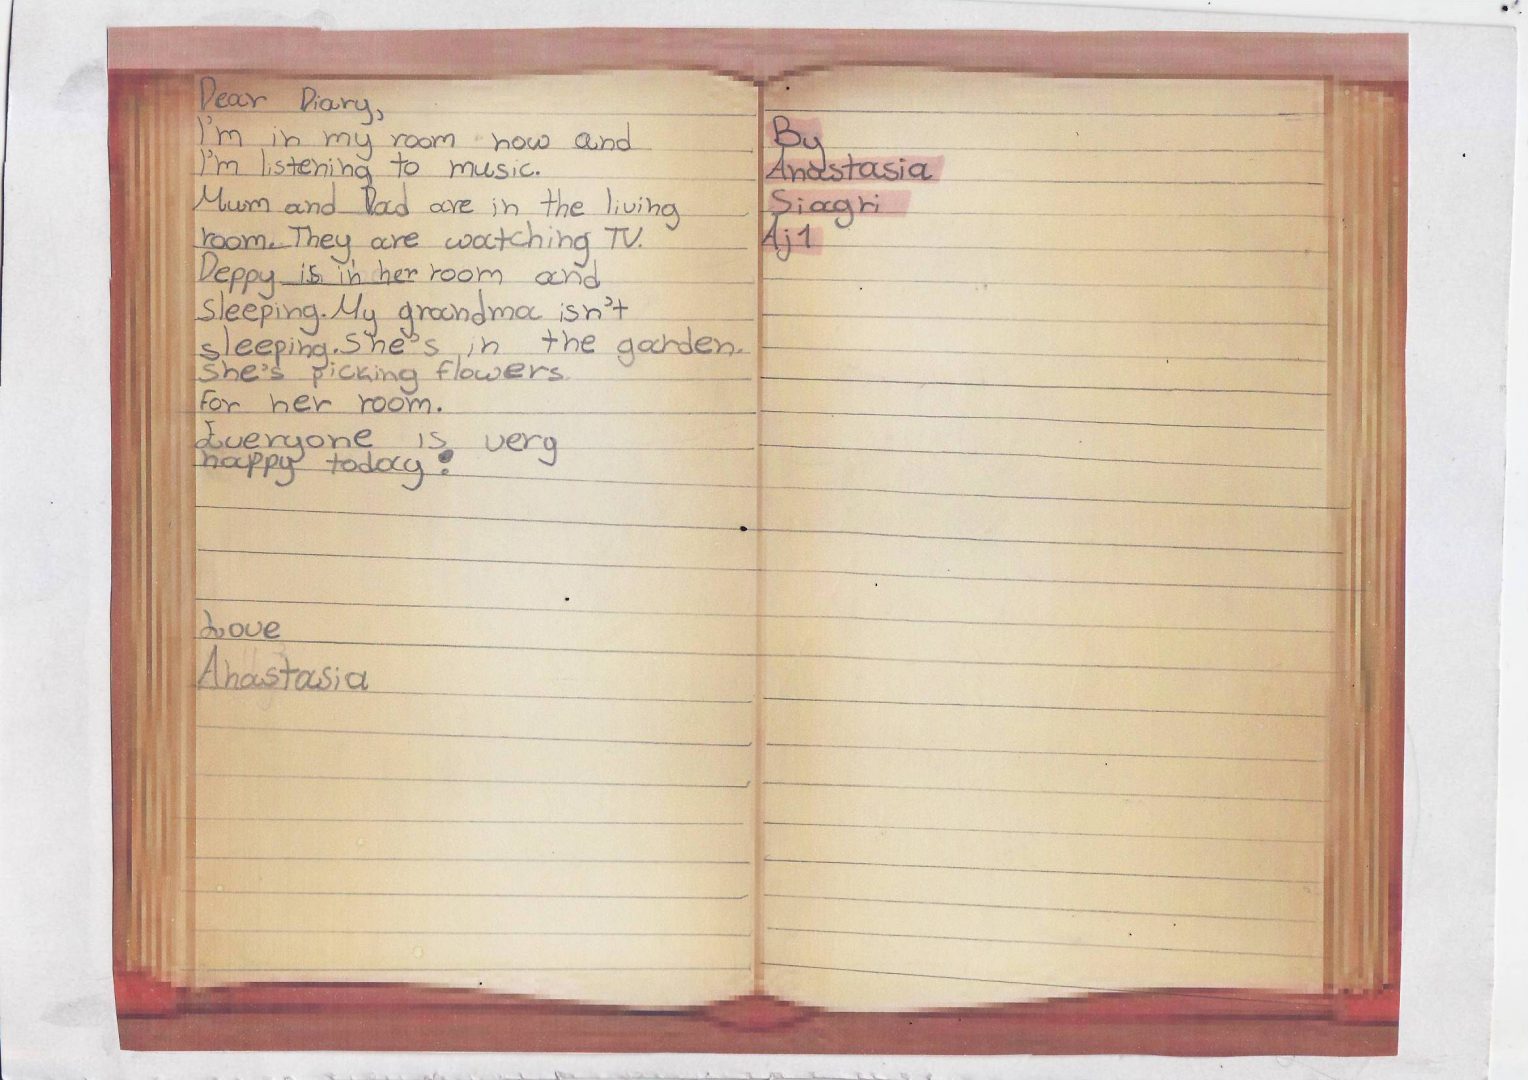 Dear Diary,
I'm in my room now and
I'm listening to music.
Mum and Dad are in the living
room. They are watching TV.
Deppy is in her room and
sleeping. My grandma isn't
sleeping. She's in the garden.
She's picking flowers
for her room.
Everyone is very
happy today!
Love
Anastasia
By
Anastasia
Siagri
Aj1